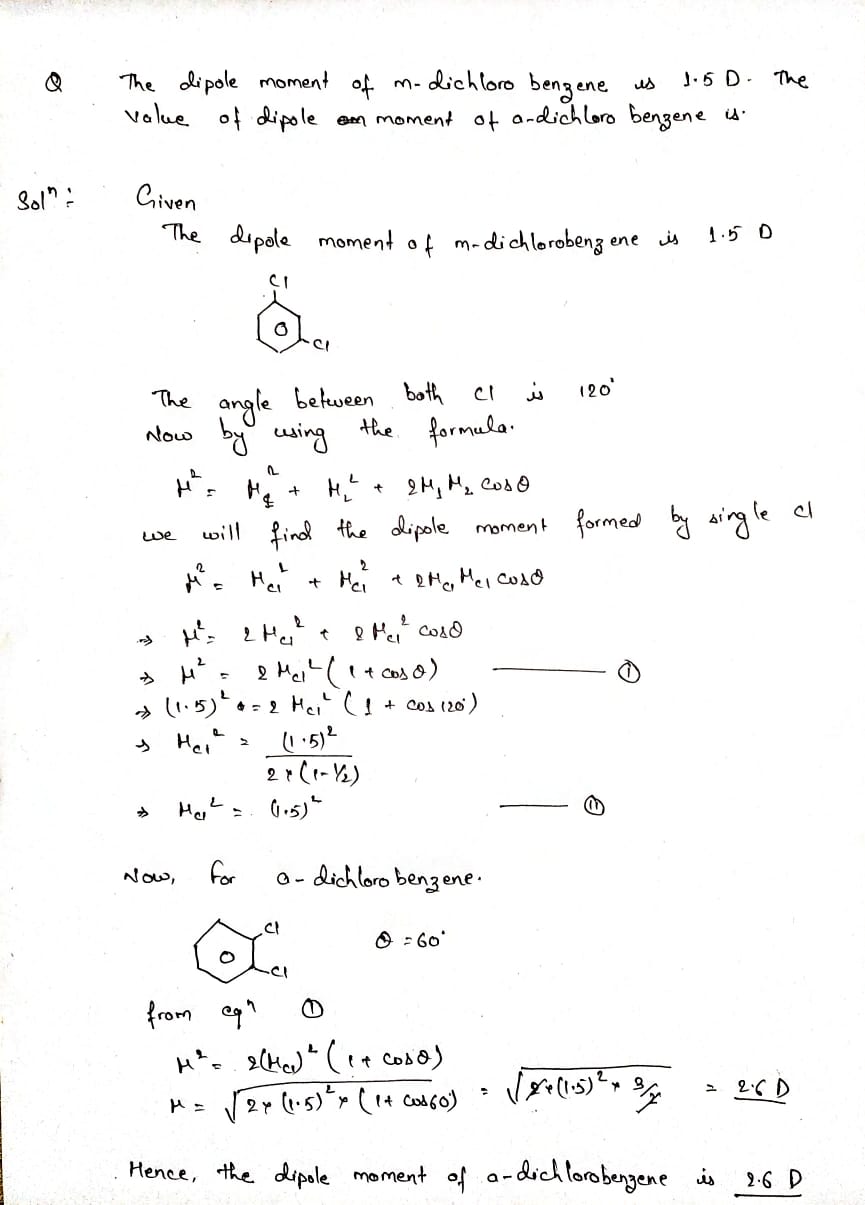 Q The dipole moment of m-dichloro benzene is 1.5 D. The
value of dipole moment of o-dichloro benzene is.
Solⁿ: Given
The dipole moment of m-dichlorobenzene is 1.5 D
Cl
Cl
The angle between both Cl is 120°
Now by using the formula.
μ² = μ₁² + μ₂² + 2μ₁ μ₂ cosθ
we will find the dipole moment formed by single cl
μ² = μCl² + μCl² + 2μCl μCl cosθ
⇒ μ² = 2μCl² + 2μCl² cosθ
⇒ μ² = 2μCl² (1 + cosθ) ——— ①
⇒ (1.5)² = 2 μCl² (1 + cos120°)
⇒ μCl² = (1.5)² / 2×(1-½)
⇒ μCl² = (1.5)² ——— ⑪
Now, for o-dichloro benzene.
Cl
Cl
θ = 60°
from eqⁿ ①
μ² = 2(μCl)² (1 + cosθ)
μ = √2×(1.5)²×(1+cos60°) = √2×(1.5)²×3/2 = 2.6 D
Hence, the dipole moment of o-dichlorobenzene is 2.6 D